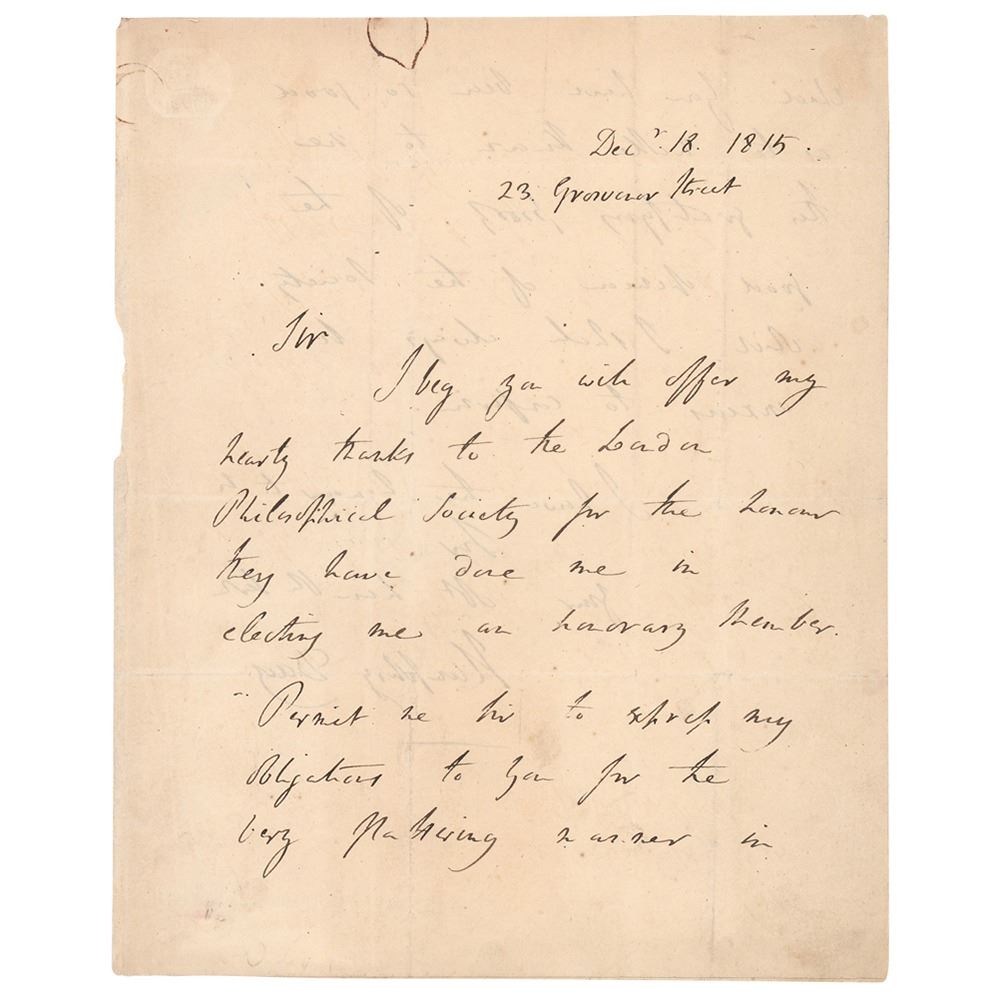 Decr. 18. 1815.
23. Grosvenor Street
Sir
I beg you will offer my
hearty thanks to the London
Philosophical Society for the honour
they have done me in
electing me an honorary Member.
Permit me Sir to express my
obligations to you for the
very flattering manner in